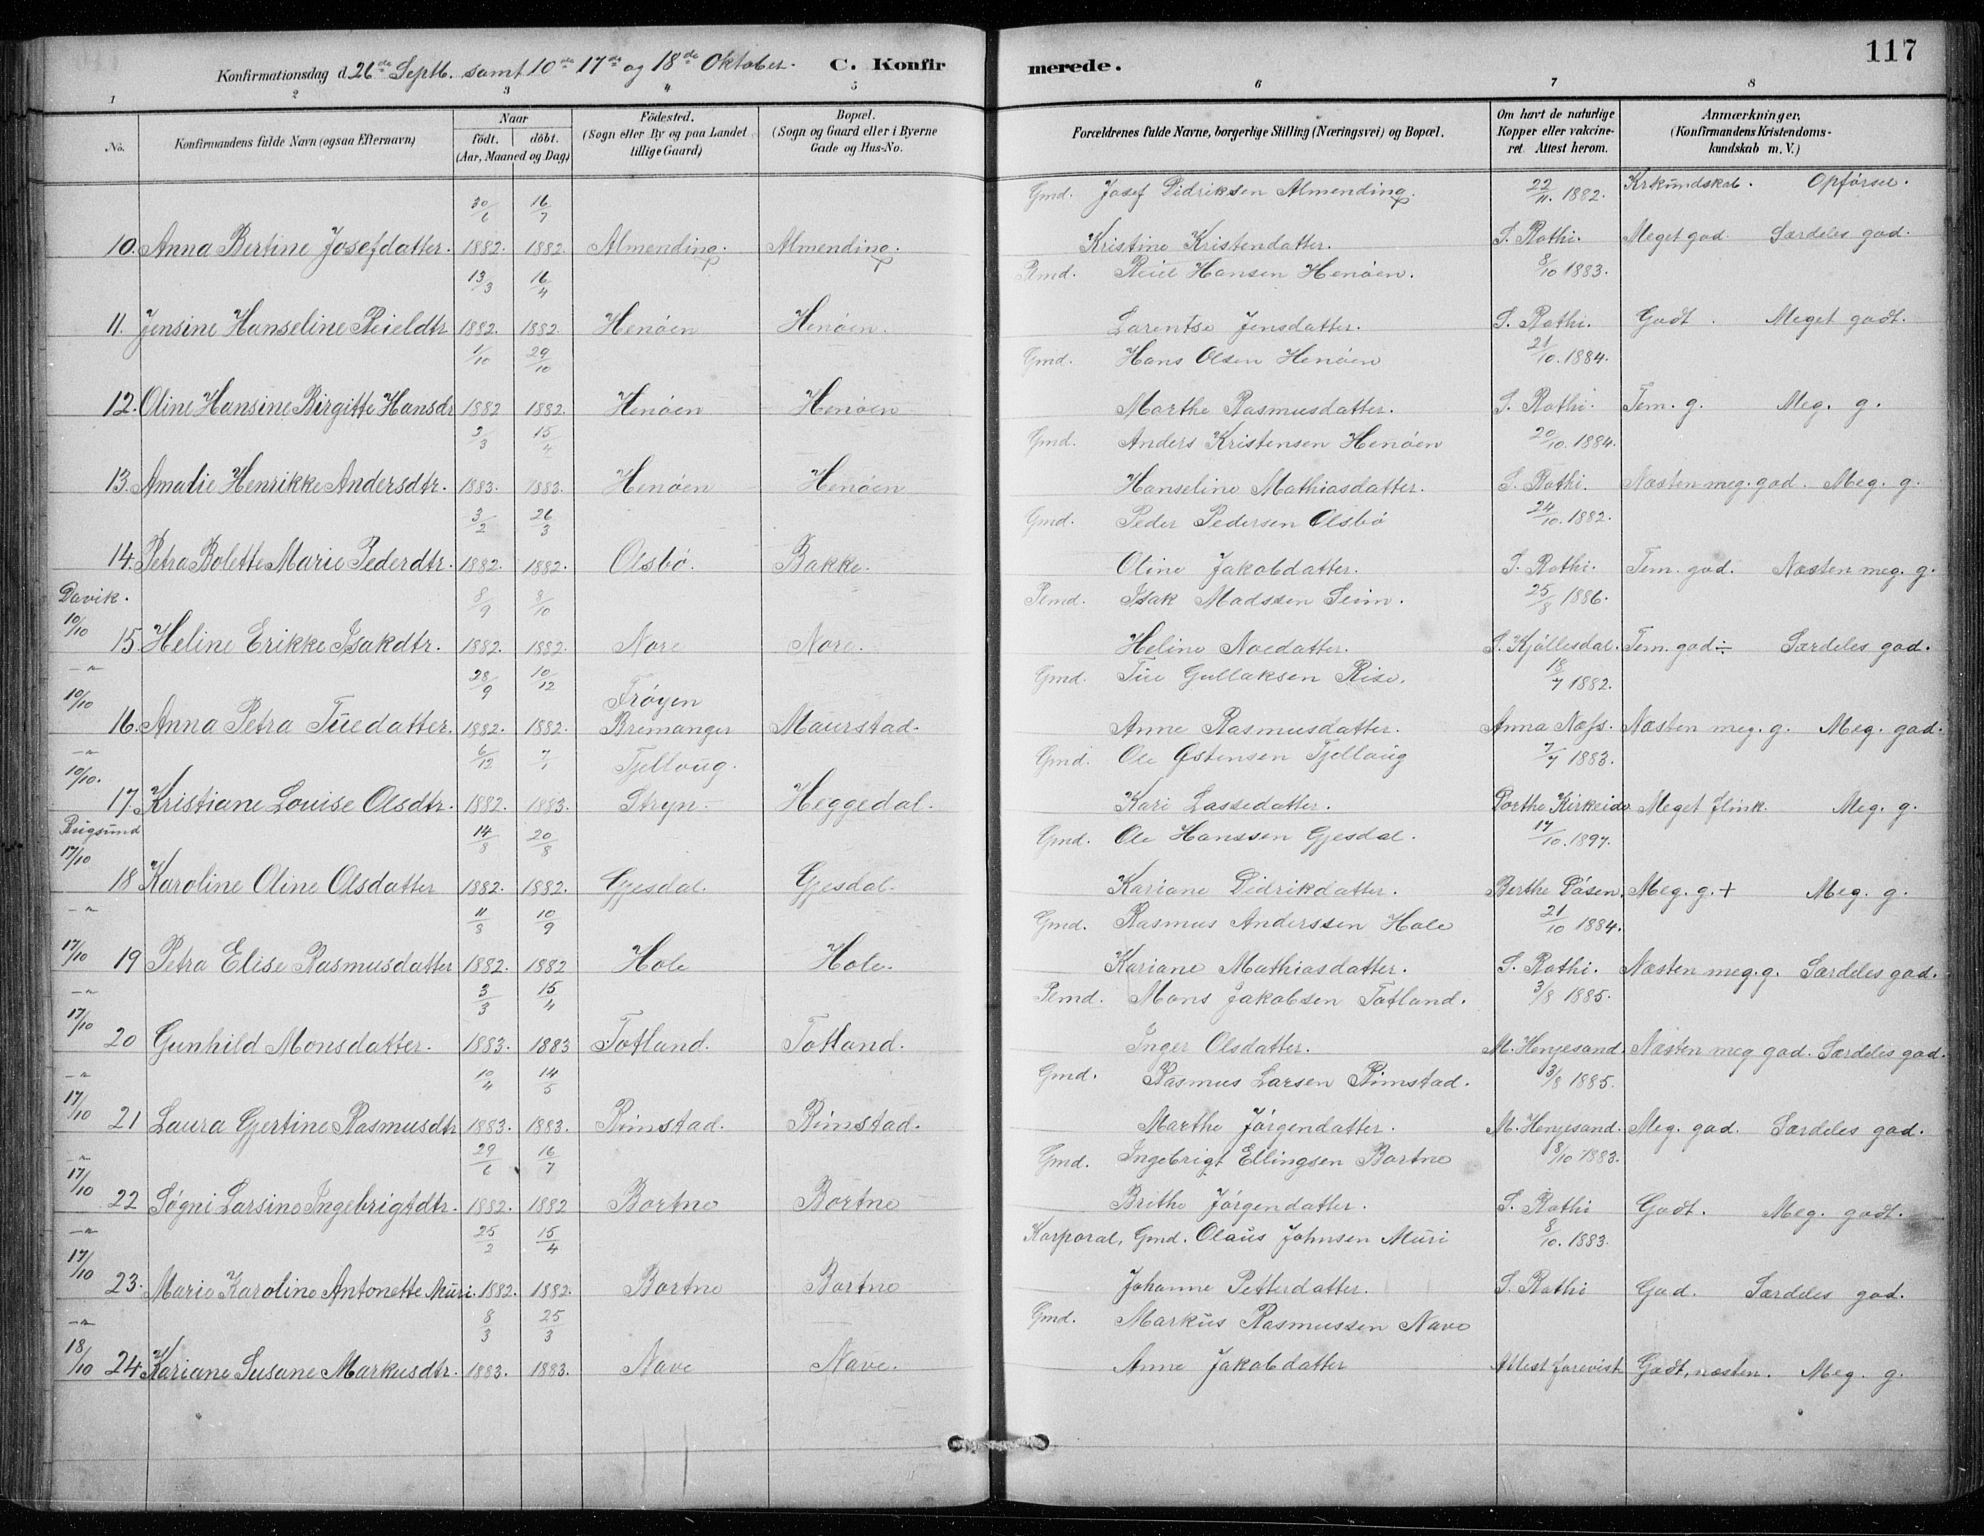 117
Konfirmationsdag d. 26de Septb. samt 10de 17de og 18de Oktober. C. Konfirmerede.
1 2 3 4 5 6 7 8
No. Konfirmandens fulde Navn (ogsaa Efternavn) Naar født. døbt. (Aar, Maaned og Dag) Födested. (Sogn eller By og paa Landet tillige Gaard) Bopæl. (Sogn og Gaard eller i Byerne Gade og Hus-No. Forældrenes fulde Navne, borgerlige Stilling (Næringsvei) og Bopæl. Om havt de naturlige Kopper eller vakcineret. Attest herom. Anmærkninger, (Konfirmandens Kristendomskundskab m. V.)
30/6 16/7 Gmd. Josef Didriksen Almending. 22/11. 1882. Krkundskab. Opførsel.
10. Anna Bertine Josefdatter. 1882. 1882. Almending. Almending. Kristine Kristendatter. S. Rothi. Meget god. Særdeles god.
13/3 16/4 Pmd. Reiel Hansen Henøen. 8/10 1883.
11. Jensine Hanseline Reieldtr. 1882. 1882. Henøen Henøen. Larentse Jensdatter. S. Rothi. Godt. Meget godt.
1/10 29/10 Gmd. Hans Olsen Henøen 21/10. 1884.
12. Oline Hansine Birgitte Hansdr 1882 1882. Henøen Henøen Marthe Rasmusdatter. S. Rothi. Tem. g. Meg. g.
3/3 15/4 Gmd. Anders Kristensen Henøen 20/10. 1884.
13. Amalie Henrikke Andersdtr. 1883. 1883. Henøen Henøen Hanseline Mathiasdatter. S. Rothi. Næsten meg. god. Meg. g.
3/2 26/3 Gmd. Peder Pedersen Olsbø 24/10. 1882.
14. Petra Bolette Marie Pederdtr. 1882. 1882. Olsbø. Bakke. Oline Jakobdatter. S. Rothi. Tem. god. Næsten meg. g.
Davik. 8/9 8/10 Pmd. Isak Madssen Seim. 25/8 1886.
10/10 15. Heline Erikke Isakdtr. 1882. 1882. Nore Nore. Heline Noedatter. S. Kjøllesdal. Tem. god ÷ Særdeles god.
-"- 28/9 10/12 Frøyen Gmd. Tue Gullaksen Rise. 18/7 1882.
10/10 16. Anna Petra Tuedatter. 1882. 1882. Bremanger Maurstad. Anne Rasmusdatter. Anna Næss. Næsten meg. g. Meg. god.
-"- 6/12 7/1 Tjellaug. Gmd. Ole Østensen Tjellaug 7/7 1883.
10/10. 17. Kristiane Louise Olsdtr. 1882. 1883. Stryn. Heggedal. Kari Lassedatter. Dorthe Kirkeide Meget flink. Meg. g.
Rugsund 14/8 20/8 Gmd. Ole Hanssen Gjesdal. 17/10. 1897.
17/10 18 Karoline Oline Olsdatter 1882. 1882. Gjesdal. Gjesdal. Kariane Didrikdatter. Berthe Løsen. Meg. g. + Meg. g.
-"- 11/8 10/9 Gmd. Rasmus Anderssen Hole 21/10 1884.
17/10 19 Petra Elise Rasmusdatter 1882. 1882 Hole Hole. Kariane Mathiasdatter. S. Rothi. Næsten meg. g. Særdeles god.
-"- 3/3 15/4 Pmd. Mons Jakobsen Totland. 3/8 1885.
17/10 20 Gunhild Monsdatter. 1883. 1883 Totland. Totland. Inger Olsdatter. M. Henjesand. Næsten meg god. Særdeles god.
-"- 10/4 14/5 Gmd. Rasmus Larsen Rimstad. 3/8 1885.
17/10 21 Laura Gjertine Rasmusdtr 1883. 1883. Rimstad. Rimstad. Marthe Jørgendatter. M. Henjesand. Meg. god. Særdeles god.
-"- 29/6 16/7 Gmd. Ingebrigt Ellingsen Bortne 8/10 1883.
17/10 22 Søgni Larsine Ingebrigtdtr. 1882. 1882 Bortne Bortne Brithe Jørgendatter. S. Rothi Godt. Meg. godt.
-"- 25/2 15/4 Korporal, Gmd. Olaus Johnsen Muri 8/10. 1883.
17/10 23. Marie Karoline Antonette Muri. 1882. 1882. Bortne Bortne Johanne Petterdatter. S. Rothi God. Særdeles god.
-"- 8/3 25/3 Gmd. Markus Rasmussen Nave
18/10 24. Kariane Susane Markusdtr. 1883. 1883. Nave Nave. Anne Jakobdatter Attest forevist Godt, næsten. Meg. g.